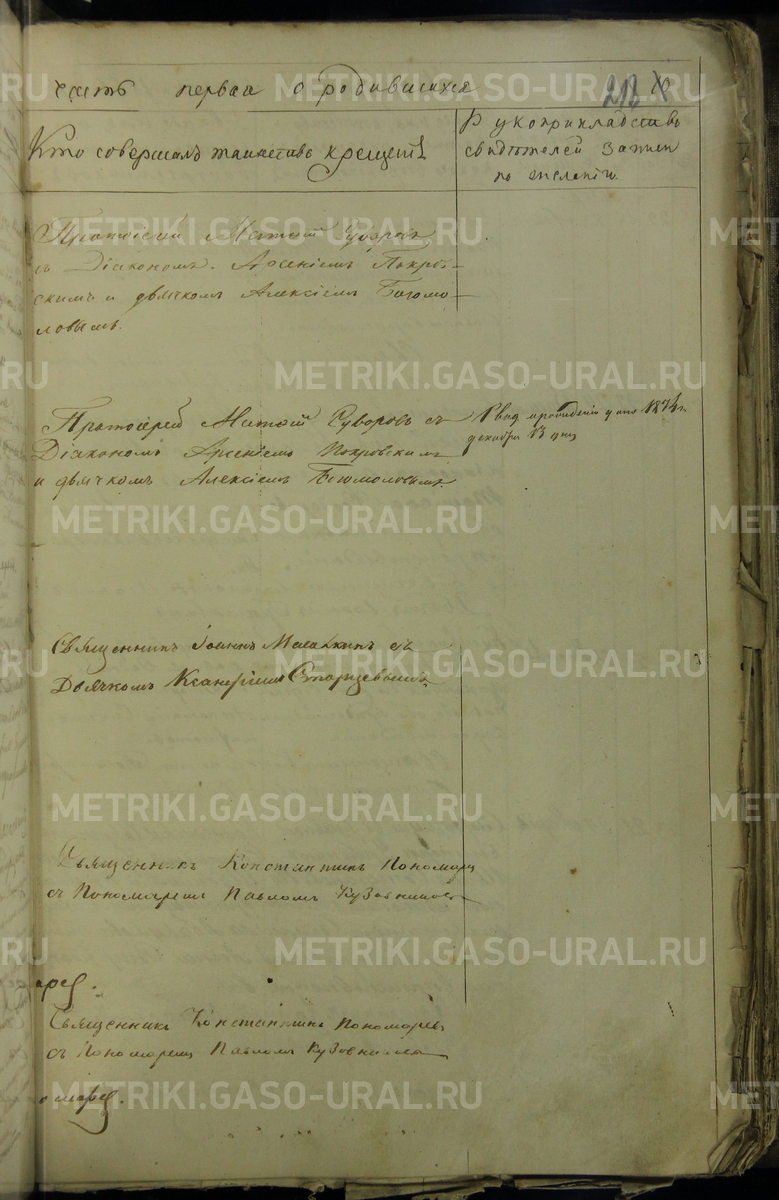 часть первая о родившихся 218 10
Кто совершалъ таинство крещенія
Рукоприкладство
свидѣтелей записи
по желанію.
Протоіерей Матѳей Суворовъ
съ Діакономъ Арсеніемъ Покров-
скимъ и дьячкомъ Алексіемъ Богомо-
ловымъ.
Протоіерей Матѳей Суворовъ съ
Діакономъ Арсеніемъ Покровскимъ
и дьячкомъ Алексіемъ Богомоловымъ.
декабря 13 дня
Священникъ Іоаннъ съ
Дьячкомъ Старцевымъ
Священникъ Константинъ Пономарев
съ Пономаремъ Павломъ Кузовниковы
арев.
Священникъ Константинъ Пономаревъ
съ Пономаремъ Павломъ
омарев.
METRIKI.GASO-URAL.RU